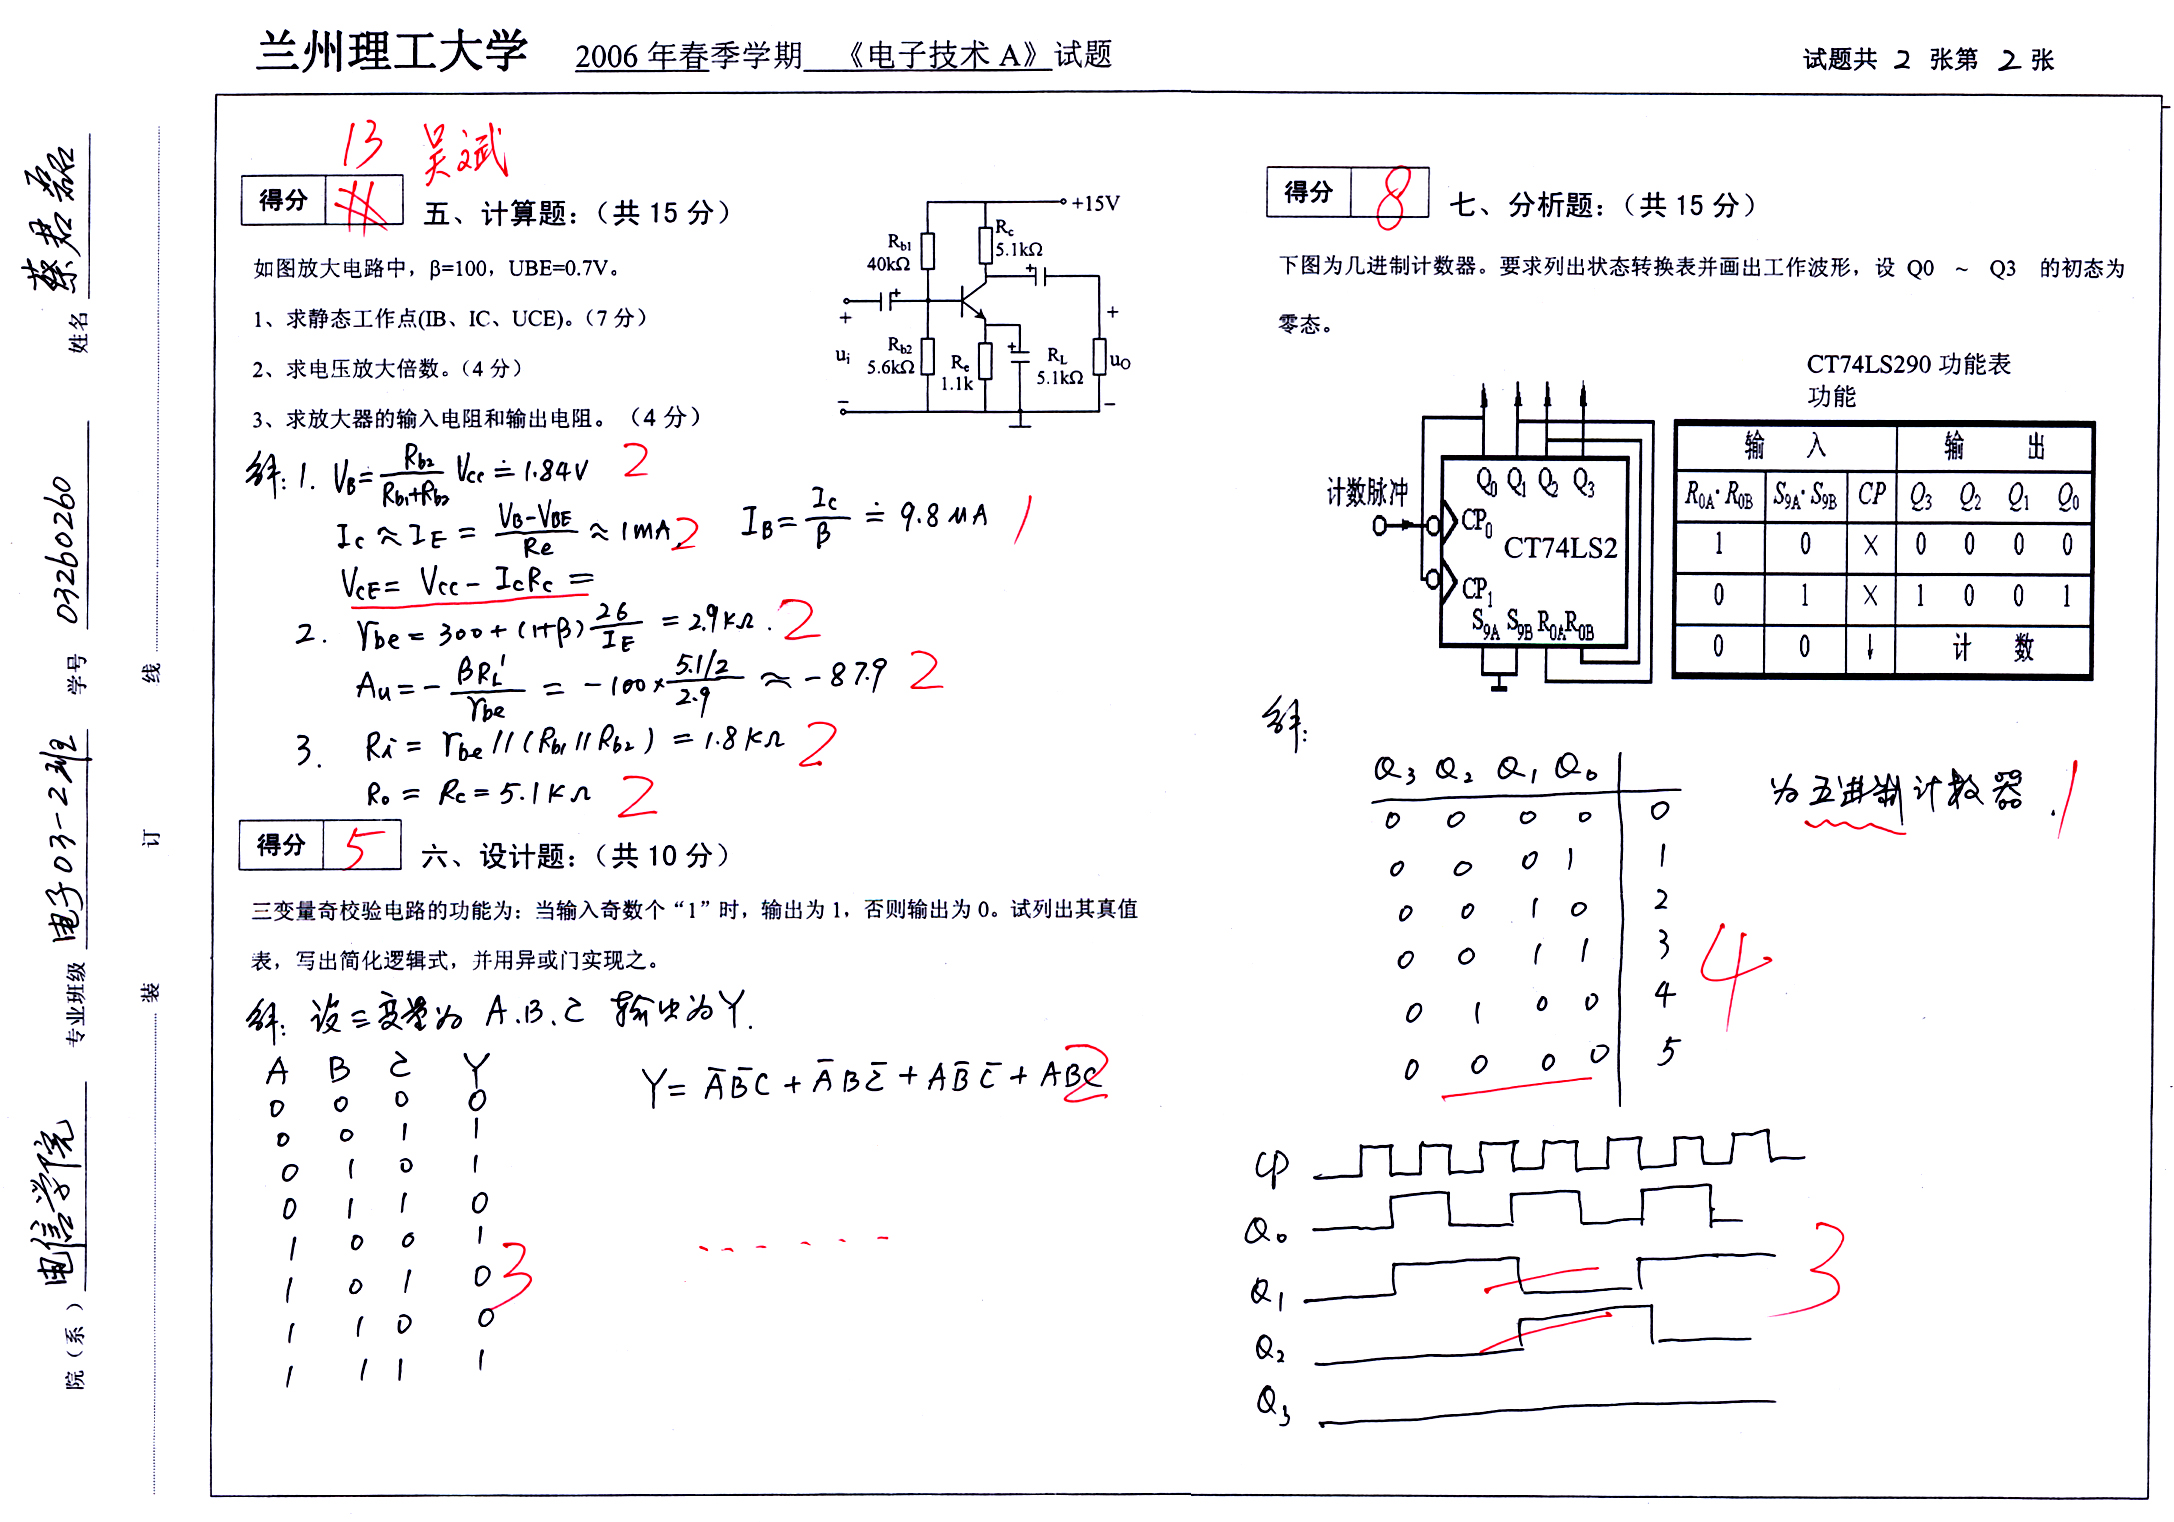 兰州理工大学 2006 年春季学期 《电子技术 A》试题
试题共 2 张第 2 张
姓名 蔡君磊
学号 03260260
专业班级 电子03-2班
院（系） 电信学院
装 订 线
13 吴斌
得分
五、计算题：（共 15 分）
如图放大电路中，β=100，UBE=0.7V。
1、求静态工作点(IB、IC、UCE)。（7 分）
2、求电压放大倍数。（4 分）
3、求放大器的输入电阻和输出电阻。（4 分）
+15V
Rb1
40kΩ
Rc
5.1kΩ
+
+
+
+
ui
Rb2
5.6kΩ
Re
1.1k
+
RL
5.1kΩ
uO
−
−
解: 1. VB = Rb2/(Rb1+Rb2) Vcc ≐ 1.84V 2
Ic ≈ IE = (VB-VBE)/Re ≈ 1mA 2 IB = Ic/β ≐ 9.8 μA 1
VCE = Vcc - IcRc =
2. rbe = 300 + (1+β) 26/IE = 2.9KΩ. 2
Au = - βRL'/rbe = -100 × (5.1/2)/2.9 ≈ -87.9 2
3. Ri = rbe // (Rb1 // Rb2) = 1.8KΩ 2
Ro = Rc = 5.1KΩ 2
得分 5
六、设计题：（共 10 分）
三变量奇校验电路的功能为：当输入奇数个“1”时，输出为 1，否则输出为 0。试列出其真值
表，写出简化逻辑式，并用异或门实现之。
解: 设三变量为 A.B.C 输出为Y.
A B C Y
0 0 0 0
0 0 1 1
0 1 0 1
0 1 1 0
1 0 0 1
1 0 1 0
1 1 0 0
1 1 1 1
3
Y = A̅B̅C + A̅BC̅ + AB̅C̅ + ABC 2
得分 8
七、分析题：（共 15 分）
下图为几进制计数器。要求列出状态转换表并画出工作波形，设 Q0 ~ Q3 的初态为
零态。
计数脉冲
Q0 Q1 Q2 Q3
CP0
CT74LS2
CP1
S9A S9B R0A R0B
CT74LS290 功能表
功能
输 入 输 出
R0A·R0B S9A·S9B CP Q3 Q2 Q1 Q0
1 0 × 0 0 0 0
0 1 × 1 0 0 1
0 0 ↓ 计 数
解:
Q3 Q2 Q1 Q0
0 0 0 0 0
0 0 0 1 1
0 0 1 0 2
0 0 1 1 3
0 1 0 0 4
0 0 0 0 5
4
为五进制计数器. 1
CP
Q0
Q1
Q2
Q3
3